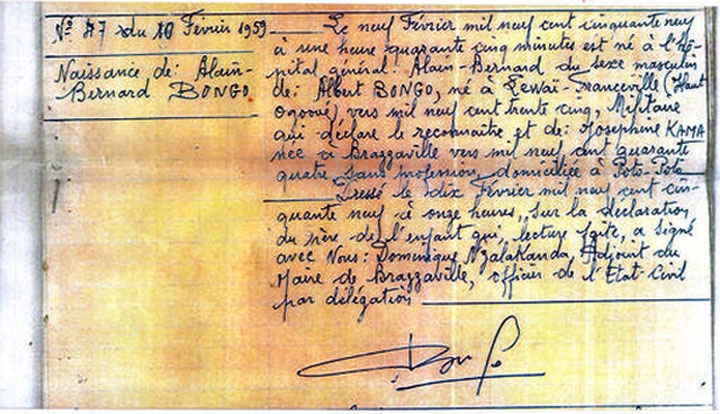 Nº 47 du 10 Février 1959
Naissance de: Alain-
Bernard BONGO
Le neuf Février mil neuf cent cinquante neuf
à une heure quarante cinq minutes est né à l'hô-
pital général: Alain-Bernard du sexe masculin
de: Albert BONGO, né à Lewaï-Franceville (Haut
Ogooué) vers mil neuf cent trente cinq, Militaire
qui déclare le reconnaitre et de: Josephine KAMA
née à Brazzaville vers mil neuf cent quarante
quatre sans profession, domiciliée à Poto-Poto
Dressé le dix Février mil neuf cent cin-
quante neuf à onze heures, sur la déclaration
du père de l'enfant qui, lecture faite, a signé
avec Nous: Dominique Nzalakanda, Adjoint du
Maire de Brazzaville, officier de l'Etat-Civil
par délégation